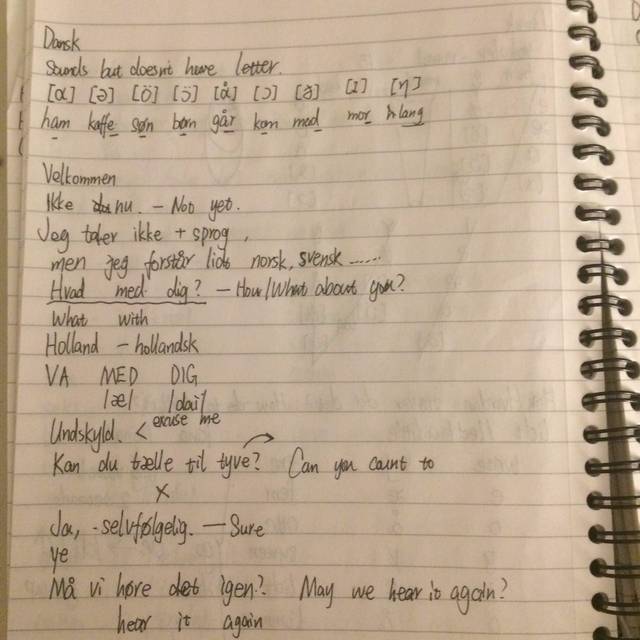 Dansk
Sounds but doesn't have letter.
[ɑ] [ə] [ö] [ɔ̈] [å] [ɔ] [ð] [ɪ] [ŋ]
ham kaffe søn børn går kom med mor lang
Velkommen
Ikke nu. - Not yet.
Jeg taler ikke + sprog,
men jeg forstår lidt norsk, svensk ......
Hvad med dig? - How/What about you?
What with
Holland - hollandsk
VA MED DIG
/æ/ /dai/
Undskyld. < excuse me
Kan du tælle til tyve? Can you count to
X
Ja, - selvfølgelig. — Sure
ye
Må vi høre det igen? May we hear it again?
hear it again